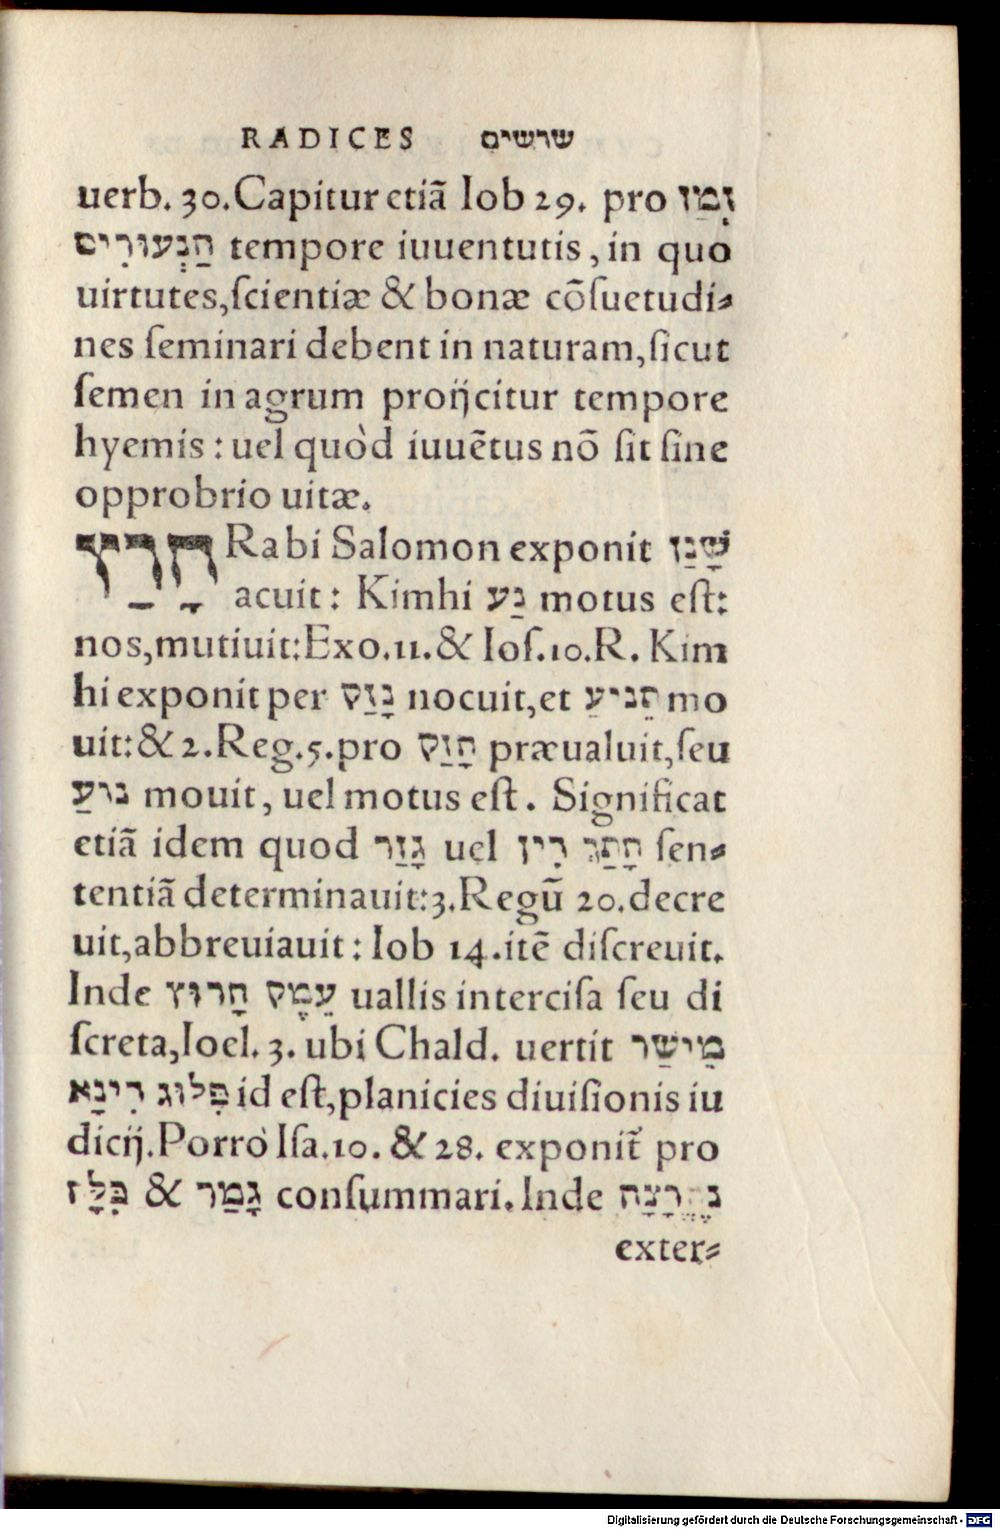 RADICES שרשים
uerb. 30. Capitur etiã Iob 29. pro זְמַן
הַנְּעוּרִים tempore iuuentutis, in quo
uirtutes, ſcientiæ & bonæ cõſuetudi⸗
nes ſeminari debent in naturam, ſicut
ſemen in agrum proijcitur tempore
hyemis : uel quòd iuuẽtus nõ ſit ſine
opprobrio uitæ.
חָרַץ Rabi Salomon exponit שָׁנַן
acuit : Kimhi נַע motus eſt:
nos, mutiuit: Exo. 11. & Ioſ. 10. R. Kim
hi exponit per נָזַק nocuit, et הֵנִיעַ mo
uit: & 2. Reg. 5. pro חָזַק præualuit, ſeu
נוּעַ mouit, uel motus eſt. Significat
etiã idem quod גָּזַר uel חָתַךְ דִּין ſen⸗
tentiã determinauit: 3. Regũ 20. decre
uit, abbreuiauit : Iob 14. itẽ diſcreuit.
Inde עֵמֶק חָרוּץ uallis interciſa ſeu di
ſcreta, Ioel. 3. ubi Chald. uertit מֵישַׁר
פִּלּוּג דִּינָא id eſt, planicies diuiſionis iu
dicij. Porrò Iſa. 10. & 28. exponit̃ pro
כָּלָּה & גָּמַר conſummari. Inde נֶחֱרָצָה
exter⸗
Digitalisierung gefördert durch die Deutsche Forschungsgemeinschaft - DFG